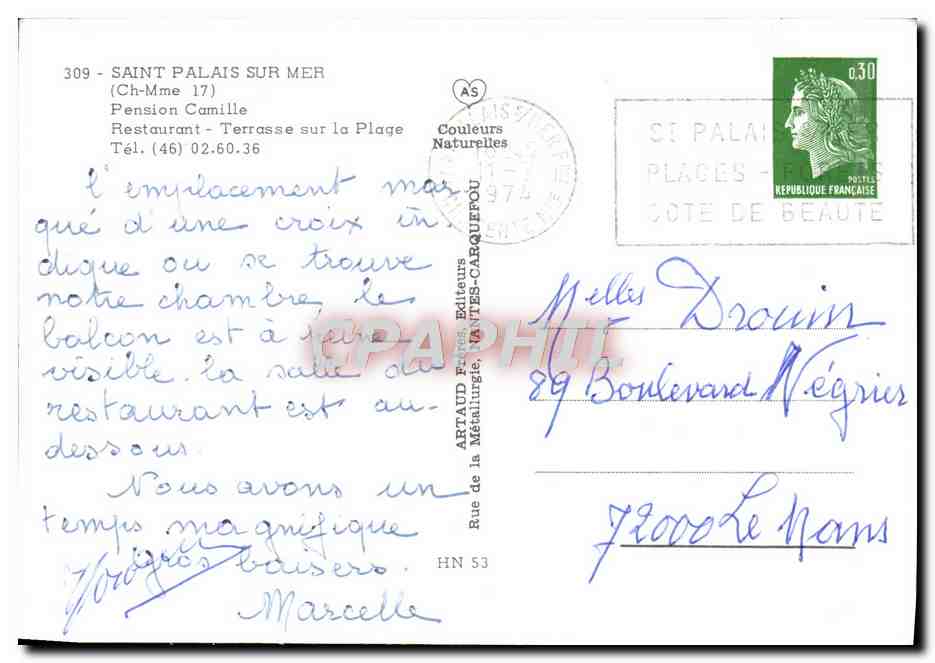 309 - SAINT PALAIS SUR MER
(Ch-Mme 17)
Pension Camille
Restaurant - Terrasse sur la Plage
Tél. (46) 02.60.36
AS
Couleurs
Naturelles
l'emplacement mar
qué d'une croix in-
dique ou se trouve
notre chambre le
balcon est à peine
visible. la salle du
restaurant est au-
dessous.
Nous avons un
temps magnifique
gros baisers.
Marcelle
ARTAUD Frères, Editeurs
Rue de la Métallurgie, NANTES-CARQUEFOU
HN 53
1974
ST PALAIS
PLAGES -
COTE DE BEAUTE
0,30
POSTES
REPUBLIQUE FRANÇAISE
Melles Drouin
89 Boulevard Négrier
72000 Le Mans
CPAPHIL